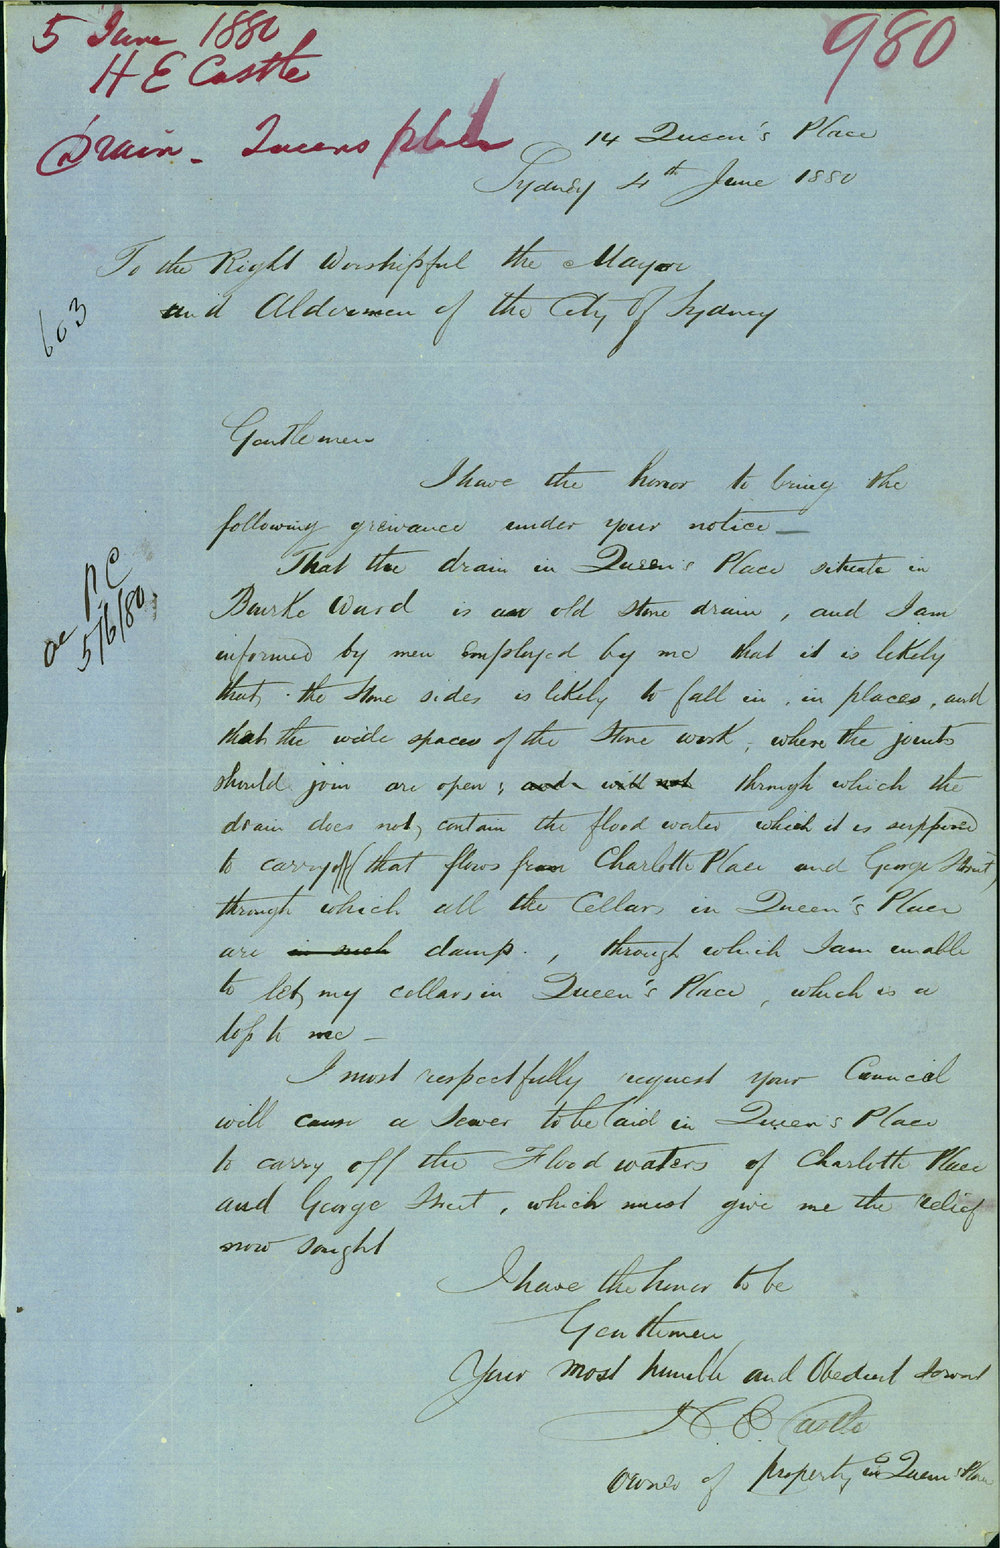 5 June 1880
H E Castle
Drain - Queens place
980
14 Queen's Place
Sydney 4th June 1880
To the Right Worshipful the Mayor
and Aldermen of the City of Sydney
603
Gentlemen
I have the honor to bring the
following greivance under your notice —
That the drain in Queen's Place situate in
Bourke Ward is an old stone drain, and I am
informed by men employed by me that it is likely
that, the stone sides is likely to fall in, in places, and
that the wide spaces of the stone work, where the joints
should join are open; and will not through which the
drain does not, contain the flood water which it is supposed
to carry off (that flows from Charlotte Place and George Street)
through which all the Cellars in Queen's Place
are in such damp., through which I am unable
to let, my cellars in Queen's Place, which is a
loss to me —
I most respectfully request your Council
will cause a Sewer to be laid in Queen's Place
to carry off the Flood waters of Charlotte Place
and George Street, which must give me the relief
now sought
I have the honor to be
Gentlemen
Your most humble and Obedient Servant
H E Castle
Owner of property in Queen's Place
5/6/80